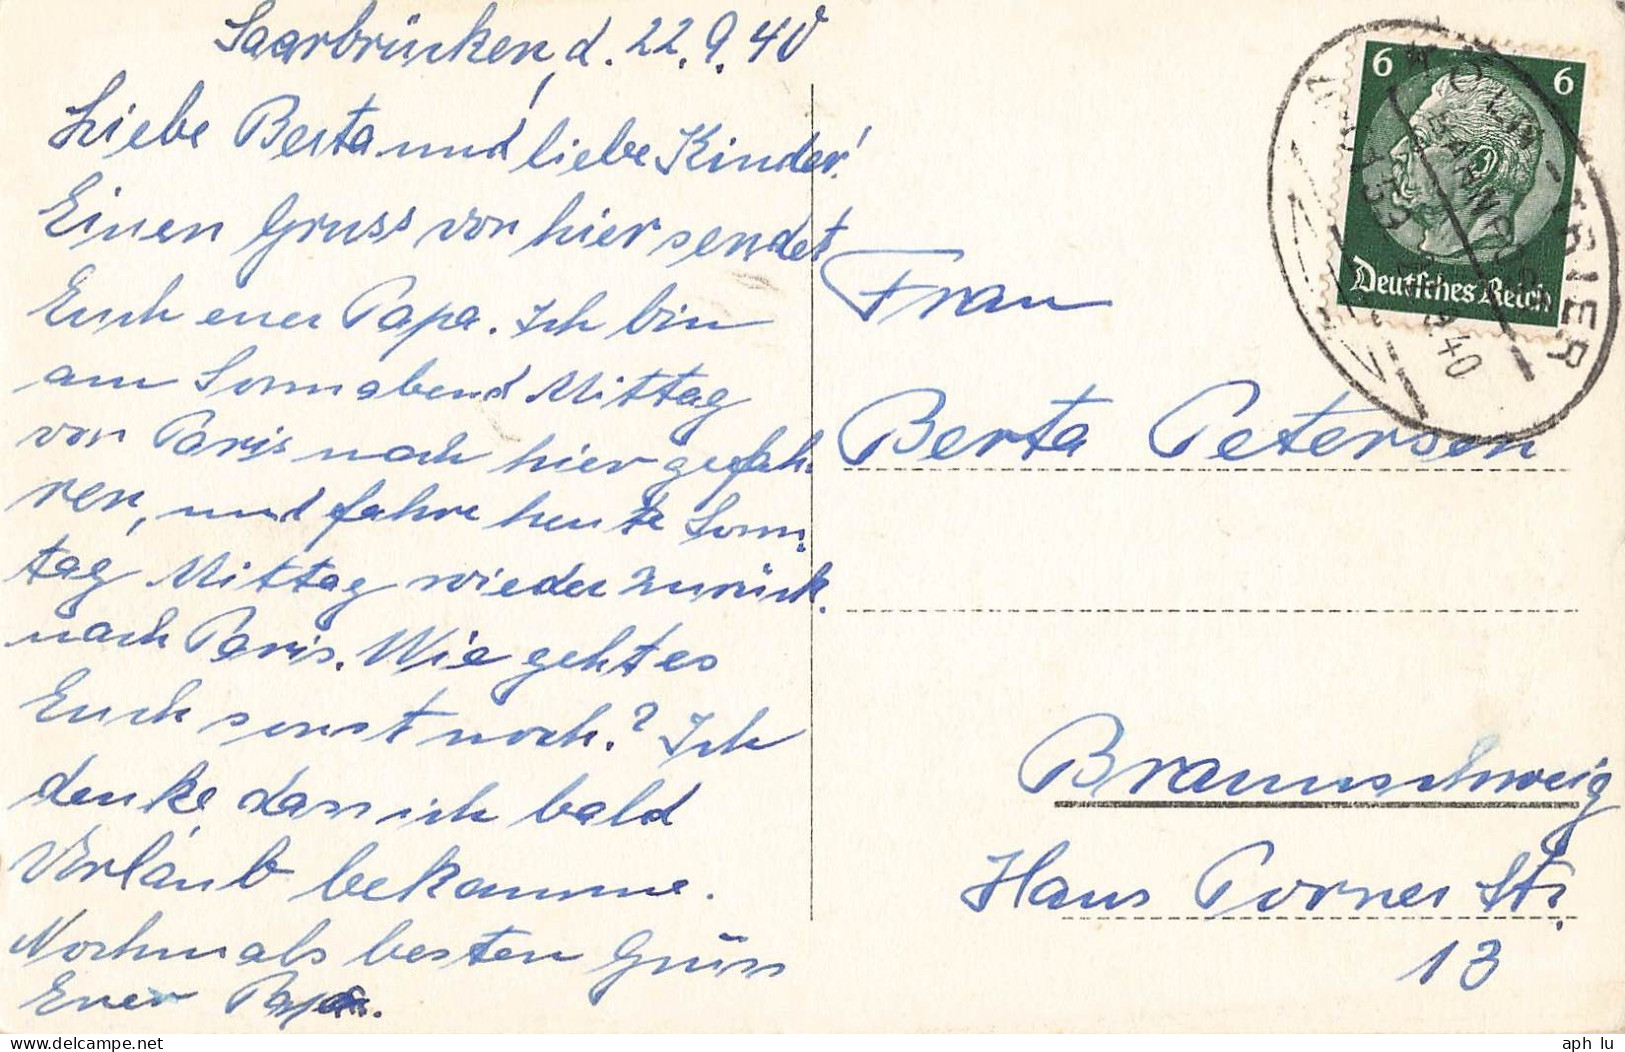 Saarbrücken, d. 22.9.40
Liebe Berta und liebe Kinder!
Einen Gruss von hier sendet
Euch euer Papa. Ich bin
am Sonnabend Mittag
von Paris nach hier gefah
ren, und fahre heute Sonn
tag Mittag wieder zurück
nach Paris. Wie geht es
Euch sonst noch? Ich
denke, dass ich bald
Urlaub bekomme.
Nochmals besten Gruss
Euer Papa.
6 6
Deutsches Reich
KÖLN - TRIER
BAHNPOST
Frau
Berta Petersen
Braunschweig
Hans Porner Str.
13
aph lu